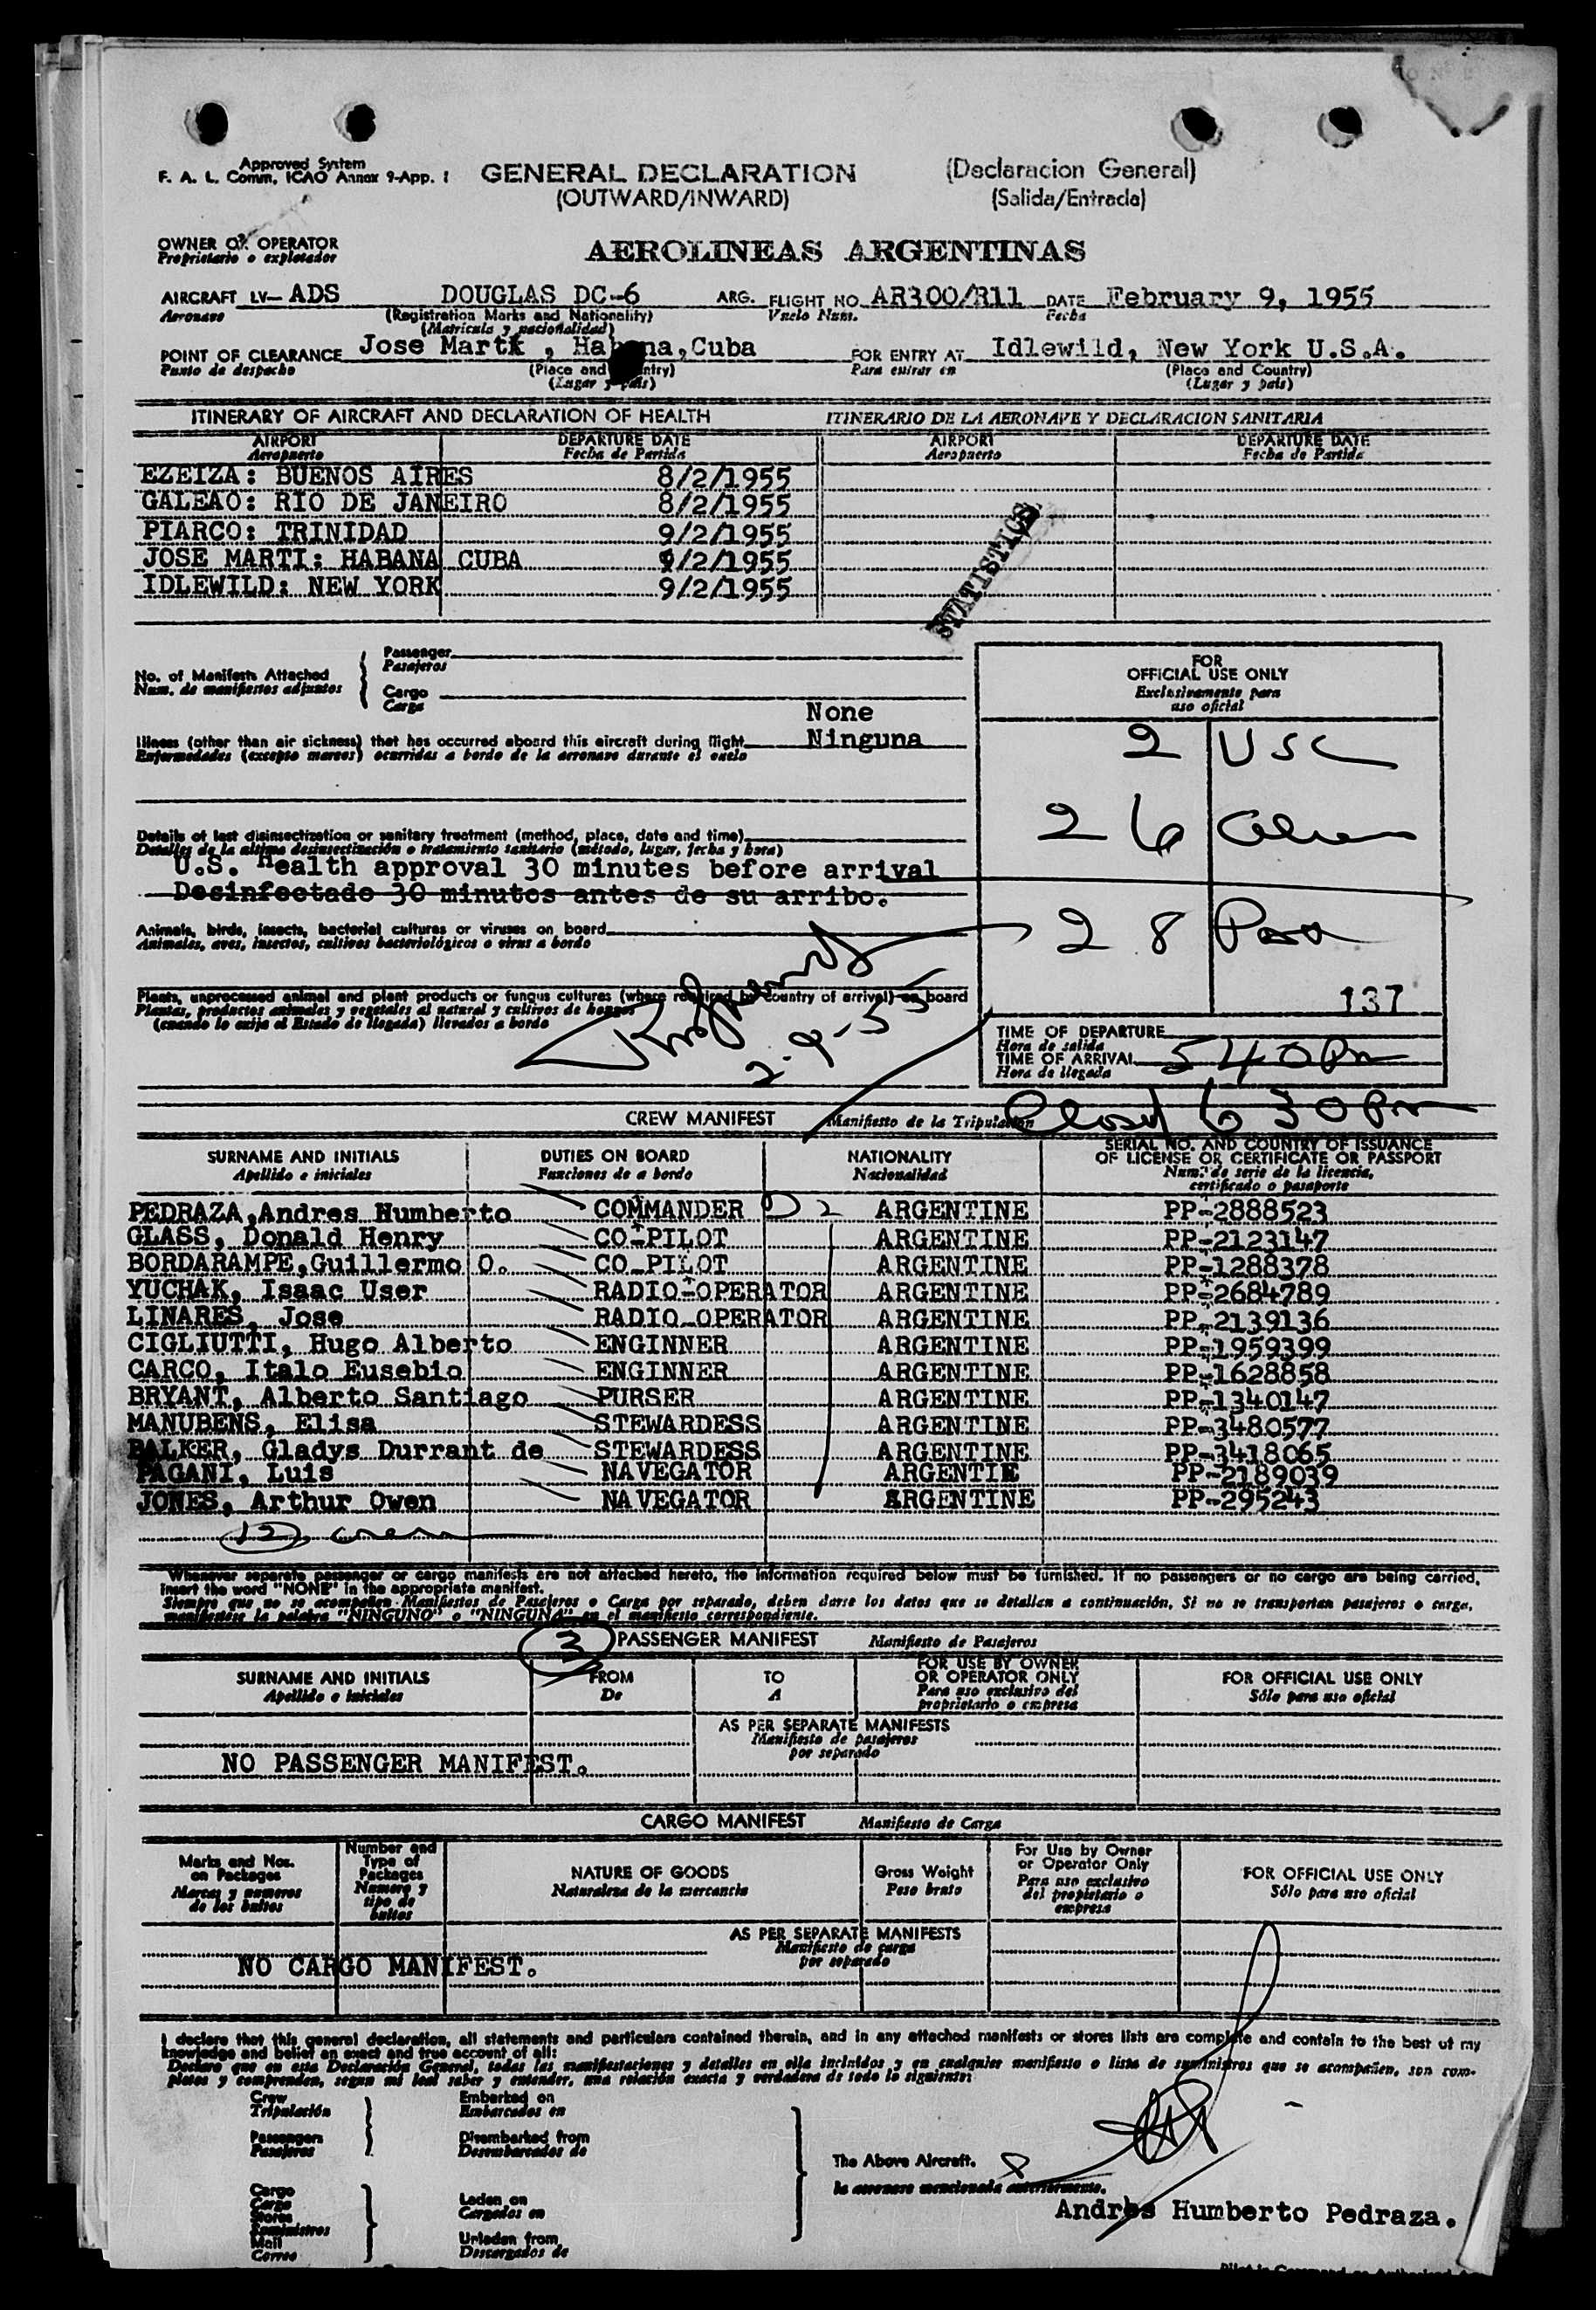 Approved System
F. A. L. Comm, ICAO Annex 9-App. 1
GENERAL DECLARATION (Declaracion General)
(OUTWARD/INWARD) (Salida/Entrada)
OWNER OR OPERATOR
Proprietario o explotador
AEROLINEAS ARGENTINAS
AIRCRAFT LV- ADS DOUGLAS DC-6 ARG. FLIGHT NO. AR300/R11 DATE February 9, 1955
Aeronave (Registration Marks and Nationality) Vuelo Num. Fecha
(Matricula y nacionalidad)
POINT OF CLEARANCE Jose Marti, Habana, Cuba FOR ENTRY AT Idlewild, New York U.S.A.
Punto de despacho (Place and Country) Para entrar en (Place and Country)
(Lugar y país) (Lugar y país)
ITINERARY OF AIRCRAFT AND DECLARATION OF HEALTH ITINERARIO DE LA AERONAVE Y DECLARACION SANITARIA
AIRPORT DEPARTURE DATE AIRPORT DEPARTURE DATE
Aeropuerto Fecha de Partida Aeropuerto Fecha de Partida
EZEIZA: BUENOS AIRES 8/2/1955
GALEAO: RIO DE JANEIRO 8/2/1955
PIARCO: TRINIDAD 9/2/1955
JOSE MARTI: HABANA CUBA 9/2/1955
IDLEWILD: NEW YORK 9/2/1955
STATISTICS
No. of Manifests Attached
Num. de manifiestos adjuntos
Passenger
Pasajeros
Cargo
Carga
FOR
OFFICIAL USE ONLY
Exclusivamente para
uso oficial
None
Illness (other than air sickness) that has occurred aboard this aircraft during flight Ninguna
Enfermedades (excepto mareos) ocurridas a bordo de la aeronave durante el vuelo
2 USC
26 Aliens
28 Pass
137
Details of last disinsectization or sanitary treatment (method, place, date and time)
Detalles de la ultima desinsectización o tratamiento sanitario (método, lugar, fecha y hora)
U.S. Health approval 30 minutes before arrival
Desinfectado 30 minutos antes de su arribo.
Animals, birds, insects, bacterial cultures or viruses on board
Animales, aves, insectos, cultivos bacteriológicos o virus a bordo
Plants, unprocessed animal and plant products or fungus cultures (where required by country of arrival) on board
Plantas, productos animales y vegetales al natural y cultivos de hongos
(cuando lo exija el Estado de llegada) llevados a bordo
2-9-55
TIME OF DEPARTURE
Hora de salida
TIME OF ARRIVAL 540 Pm
Hora de llegada
Closed 630 Pm
CREW MANIFEST Manifiesto de la Tripulacion
SURNAME AND INITIALS DUTIES ON BOARD NATIONALITY SERIAL NO. AND COUNTRY OF ISSUANCE
OF LICENSE OR CERTIFICATE OR PASSPORT
Apellido e iniciales Funciones de a bordo Nacionalidad Num. de serie de la licencia,
certificado o pasaporte
PEDRAZA, Andres Humberto COMMANDER D 2 ARGENTINE PP-2888523
GLASS, Donald Henry CO-PILOT ARGENTINE PP-2123147
BORDARAMPE, Guillermo O. CO-PILOT ARGENTINE PP-1288378
YUCHAK, Isaac User RADIO-OPERATOR ARGENTINE PP-2684789
LINARES, Jose RADIO-OPERATOR ARGENTINE PP-2139136
CIGLIUTTI, Hugo Alberto ENGINNER ARGENTINE PP-1959399
CARCO, Italo Eusebio ENGINNER ARGENTINE PP-1628858
BRYANT, Alberto Santiago PURSER ARGENTINE PP-1340147
MANUBENS, Elisa STEWARDESS ARGENTINE PP-3480577
BALKER, Gladys Durrant de STEWARDESS ARGENTINE PP-3418065
PAGANI, Luis NAVEGATOR ARGENTIE PP-2189039
JONES, Arthur Owen NAVEGATOR ARGENTINE PP-295243
12 crew
Whenever separate passenger or cargo manifests are not attached hereto, the information required below must be furnished. If no passengers or no cargo are being carried,
insert the word "NONE" in the appropriate manifest.
Siempre que no se acompañen Manifiestos de Pasajeros o Carga por separado, deben darse los datos que se detallan a continuación, Si no se transportan pasajeros o carga,
manifiestese la palabra "NINGUNO" o "NINGUNA" en el manifiesto correspondiente.
3 PASSENGER MANIFEST Manifiesto de Pasajeros
SURNAME AND INITIALS FROM TO FOR USE BY OWNER
OR OPERATOR ONLY FOR OFFICIAL USE ONLY
Apellido e iniciales De A Para uso exclusivo del
proprietario o empresa Sólo para uso oficial
AS PER SEPARATE MANIFESTS
Manifiesto de pasajeros
por separado
NO PASSENGER MANIFEST.
CARGO MANIFEST Manifiesto de Carga
Marks and Nos.
on Packages
Marcas y numeros
de los bultos
Number and
Type of
Packages
Numero y
tipo de
bultos
NATURE OF GOODS
Naturaleza de la mercancia
Gross Weight
Peso bruto
For Use by Owner
or Operator Only
Para uso exclusivo
del propietario o
empresa
FOR OFFICIAL USE ONLY
Sólo para uso oficial
AS PER SEPARATE MANIFESTS
Manifiesto de carga
por separado
NO CARGO MANIFEST.
I declare that this general declaration, all statements and particulars contained therein, and in any attached manifests or stores lists are complete and contain to the best of my
knowledge and belief an exact and true account of all:
Declaro que en esta Declaración General, todas las manifestaciones y detalles en ella incluidos y en cualquier manifiesto o lista de suministros que se acompañen, son com-
pletos y comprenden, segun mi leal saber y entender, una relación exacta y verdadera de todo lo siguiente:
Crew
Tripulación
Passengers
Pasajeros
Embarked on
Embarcados en
Disembarked from
Desembarcados de
Cargo
Carga
Stores
Suministros
Mail
Correo
Laden on
Cargados en
Unladen from
Descargados de
The Above Aircraft.
la aeronave mencionada anteriormente.
Andres Humberto Pedraza.